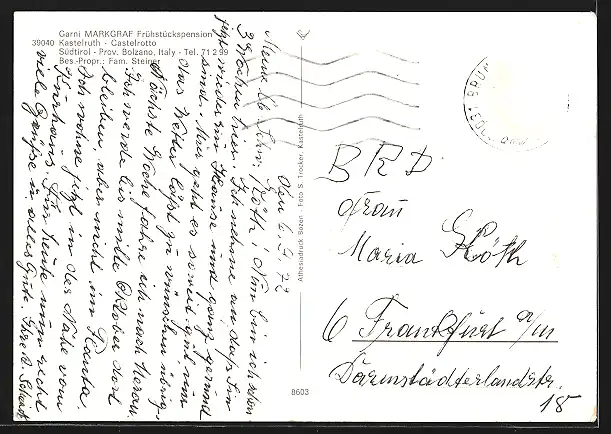 Garni MARKGRAF Frühstückspension
39040 Kastelruth - Castelrotto
Südtirol - Prov. Bolzano, Italy - Tel. 71 2 99
Bes.-Propr.: Fam. Steiner
den 2.9.72
Meine lb. Schw. Köth! Nun bin ich schon
3 Wochen hier. Ich nehme an daß Sie
jetzt wieder im Hause und ganz gesund
sind. Mir geht es soweit gut nur
das Wetter läßt zu wünschen übrig.
Nächste Woche fahre ich nach Meran.
Ich werde bis mitte Oktober dort
bleiben, aber nicht im
Ich wohne jetzt in der Nähe vom
Kurhaus. Für heute nun recht
viele Grüße u. alles Gute. Ihre
Athesiadruck Bozen - Foto S. Trocker, Kastelruth
8603
BRD
Frau
Maria Köth
6 Frankfurt a/m
Darmstädterlandstr.
18